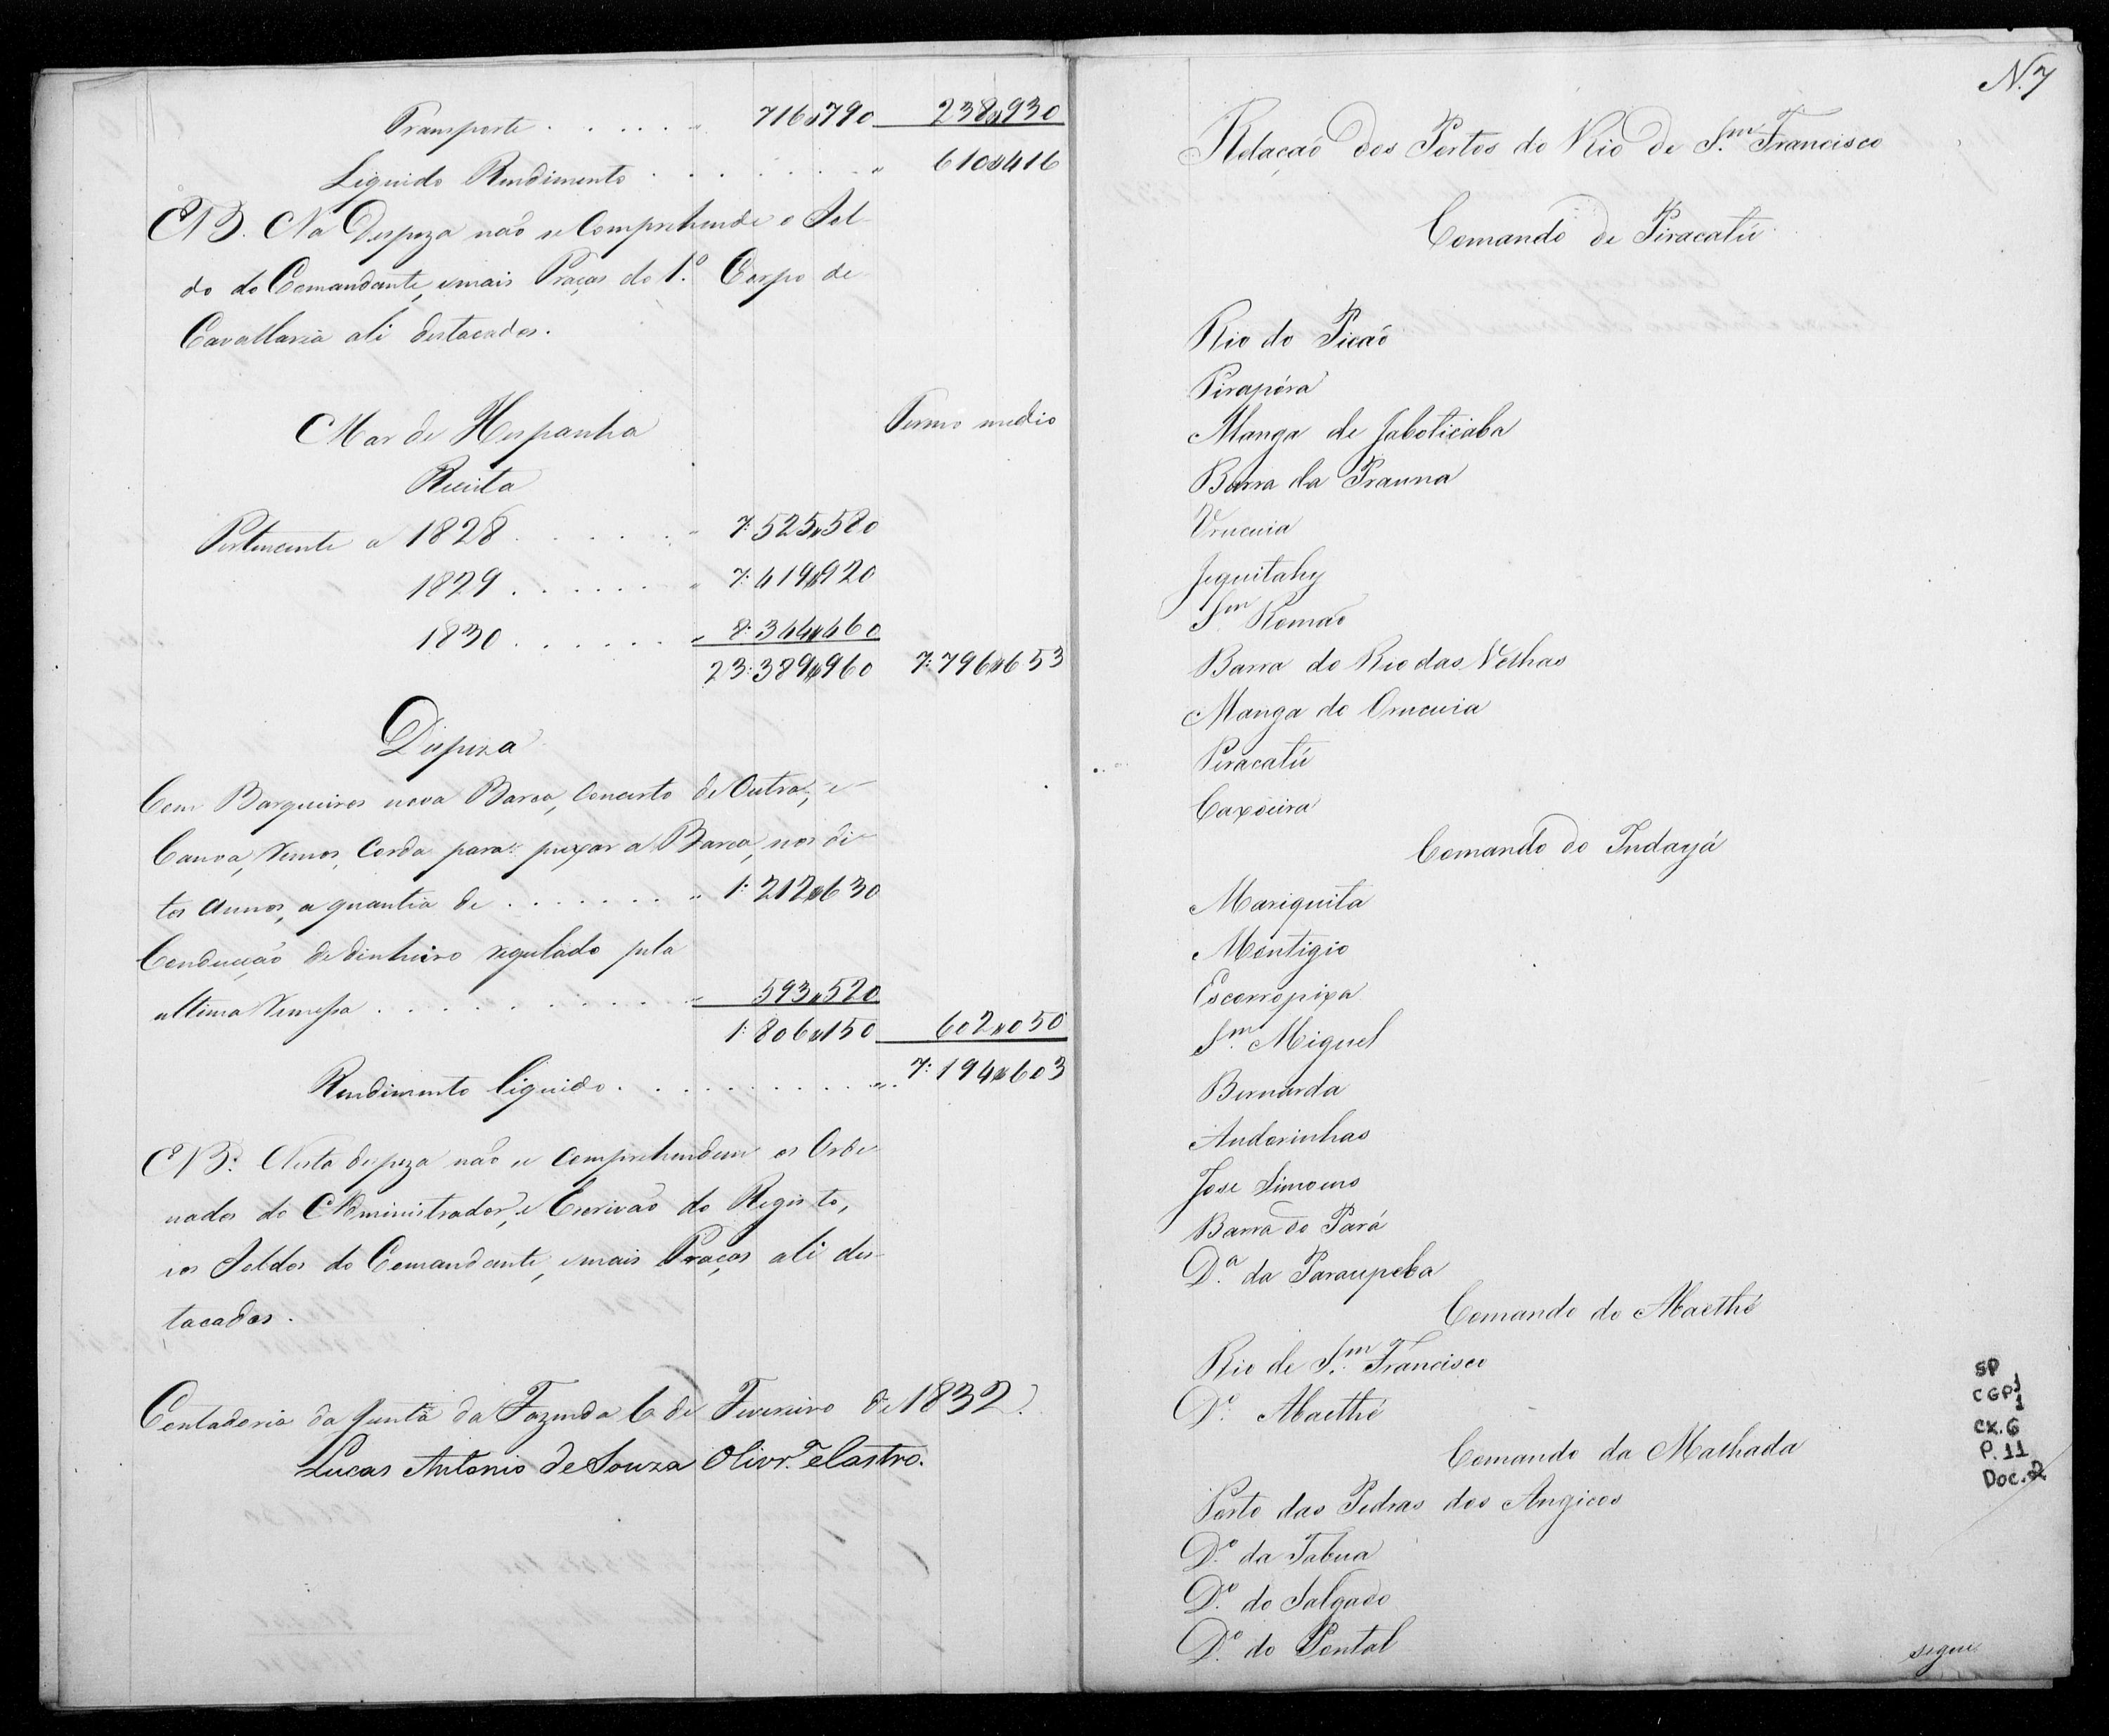 Transporte . . . . . . " 716$790 238$930
Liquido Rendimento . . . . . . . " 610$416
NB. Na Despeza não se Comprehende o Sol-
do do Comandante, e mais Praças do 1.º Corpo de
Cavallaria ali destacados.
Mar de Hespanha Termo medio
Receita
Pertencente a 1828 . . . . . . " 7:525$580
1829 . . . . . . " 7:419$920
1830 . . . . . . " 8:344$460
23:389$960 7:796$653
Dispeza
Com Barqueiros nova Barca, Concerto de Outra, e
Canoa, remos, Corda para puxar a Barca, nos di-
tos Annos, a quantia de . . . . . . . " 1:212$630
Conducção de dinheiro regulado pela
ultima remessa . . . . . . . . . . " 593$520
1:806$150 602$050
Rendimento liquido . . . . . . . . . . " 7:194$603
NB. Nesta despeza não se comprehendem os Orde-
nados do Administrador, e Escrivão do Registo,
e os Soldos do Comandante, e mais Praças ali des-
tacados.
Contadoria da Junta da Fazenda 6 de Fevereiro de 1832.
Lucas Antonio de Souza Olivr.ª e Castro.
N. 7
Relação dos Portos do Rio de S.m Francisco
Comando de Piracatú
Rio do Picaó
Pirapóra
Manga de Jaboticaba
Barra da Prauna
Urucuia
Jequitahy
S.m Romão
Barra do Rio das Velhas
Manga do Orucuia
Piracatú
Caxoeira
Comando do Indayá
Mariquita
Montigio
Escorropixa
S.m Miguel
Bernarda
Andorinhas
Jose Simoens
Barra do Pará
D.ª da Paraupeba
Comando do Abaethé
Rio de S.m Francisco
D.º Abaethé
Comando da Machada
Porto das Pedras dos Angicos
D.º da Tabua
D.º do Salgado
D.º do Pontal
segue
SP
CGP1
1
CX.6
P.11
Doc.2